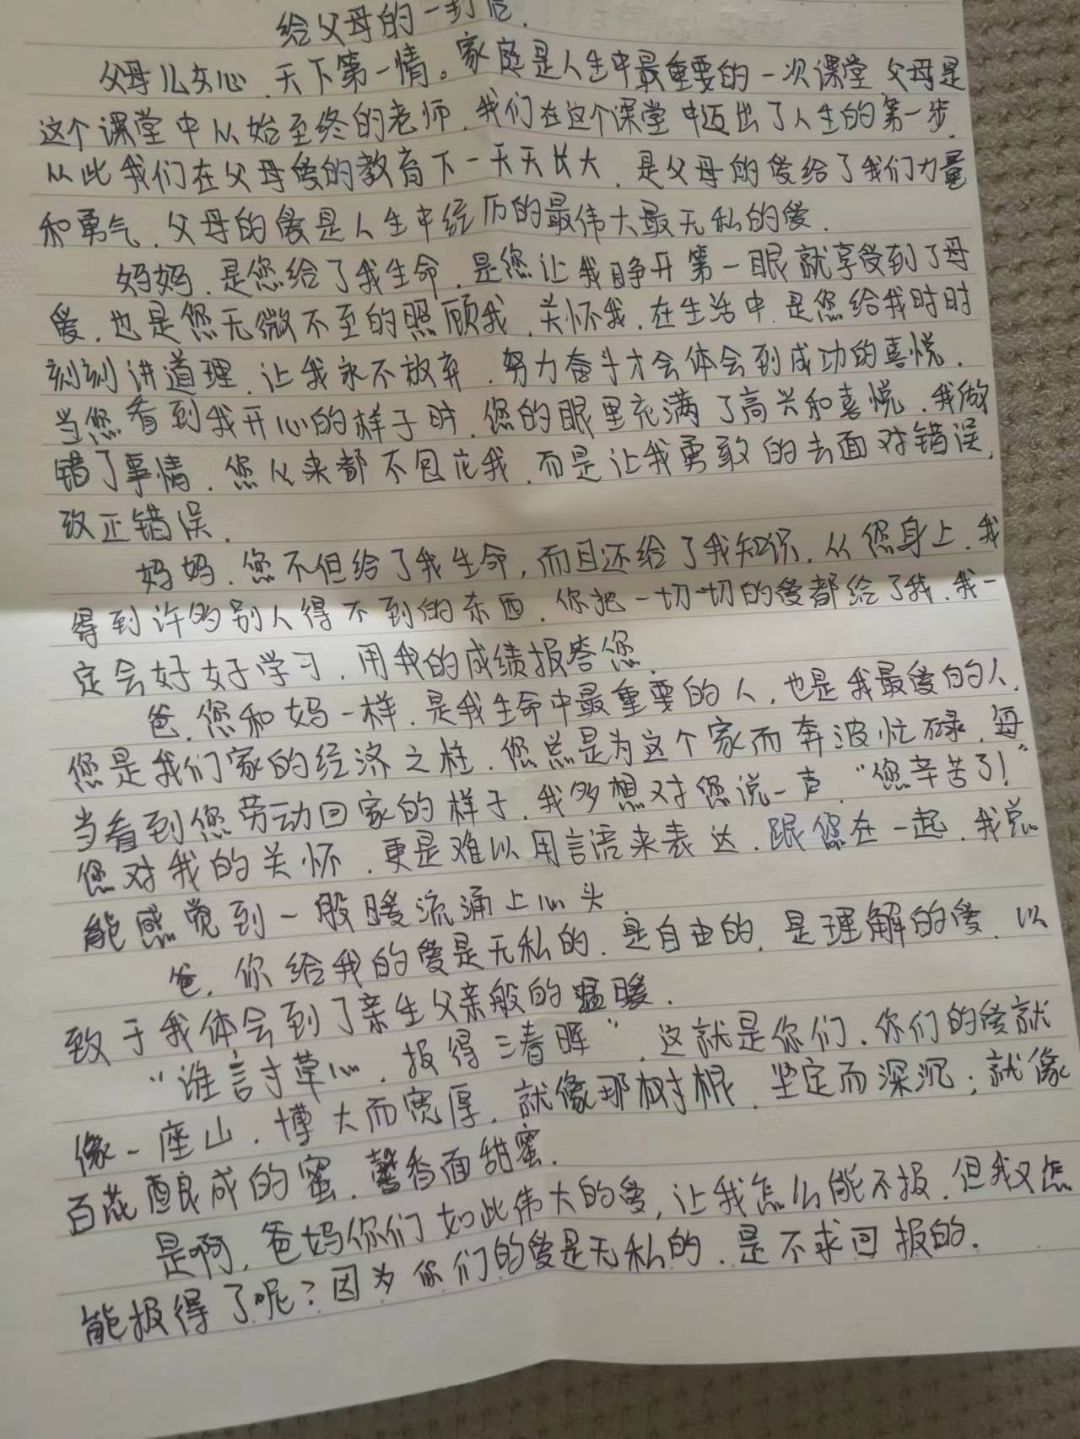 给父母的一封信.
父母儿女心.天下第一情。家庭是人生中最重要的一次课堂 父母是
这个课堂中从始至终的老师.我们在这个课堂中迈出了人生的第一步.
从此我们在父母爱的教育下一天天长大.是父母的爱给了我们力量
和勇气.父母的爱是人生中经历的最伟大最无私的爱.
妈妈.是您给了我生命.是您让我睁开第一眼就享受到了母
爱.也是您无微不至的照顾我.关怀我.在生活中.是您给我时时
刻刻讲道理.让我永不放弃.努力奋斗才会体会到成功的喜悦.
当您看到我开心的样子时.您的眼里充满了高兴和喜悦.我做
错了事情.您从来都不包庇我.而是让我勇敢的去面对错误.
改正错误.
妈妈.您不但给了我生命,而且还给了我知识.从您身上.我
得到许多别人得不到的东西.你把一切一切的爱都给了我.我一
定会好好学习.用我的成绩报答您.
爸.您和妈一样.是我生命中最重要的人,也是我最爱的人.
您是我们家的经济之柱.您总是为这个家而奔波忙碌.每
当看到您劳动回家的样子.我多想对您说一声."您辛苦了!"
您对我的关怀.更是难以用言语来表达.跟您在一起.我总
能感觉到一般暖流涌上心头
爸.你给我的爱是无私的.是自由的.是理解的爱.以
致于我体会到了亲生父亲般的温暖.
"谁言寸草心.报得三春晖".这就是你们.你们的爱就
像一座山.博大而宽厚.就像那树根.坚定而深沉;就像
百花酿成的蜜.馨香而甜蜜.
是啊,爸妈你们如此伟大的爱,让我怎么能不报.但我又怎
能报得了呢?因为你们的爱是无私的.是不求回报的.